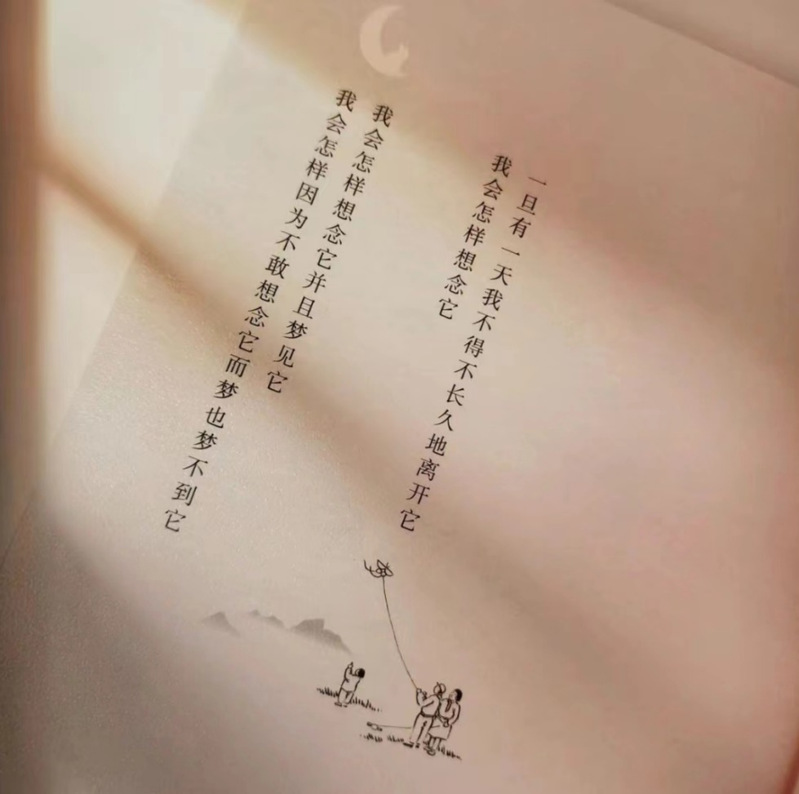 一旦有一天我不得不长久地离开它
我会怎样想念它
我会怎样想念它并且梦见它
我会怎样因为不敢想念它而梦也梦不到它